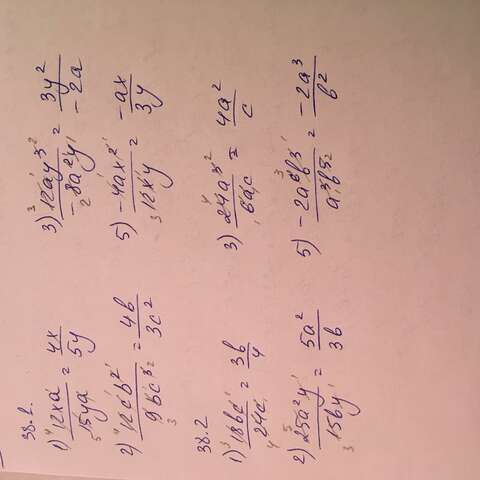 38.1.
1) 12xa/15ya = 4x/5y
2) 12cb²/9bc³ = 4b/3c²
3) 12ay³/-8a²y = 3y²/-2a
5) -4ax²/12xy = -ax/3y
38.2
1) 18bc/24c = 3b/4
2) 25a²y/15by = 5a²/3b
3) 24a³/6ac = 4a²/c
5) -2a⁶b³/a³b⁵ = -2a³/b²